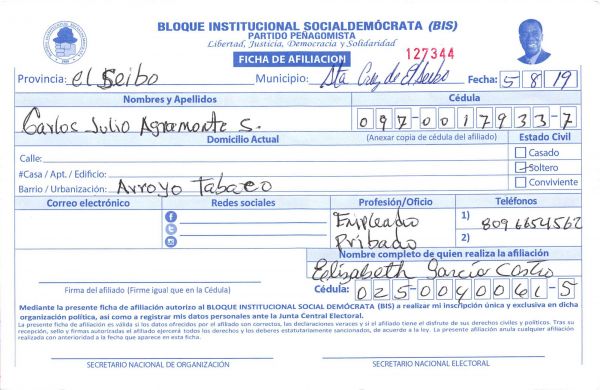 BLOQUE INSTITUCIONAL SOCIALDEMÓCRATA (BIS)
PARTIDO PEÑAGOMISTA
Libertad, Justicia, Democracia y Solidaridad
FICHA DE AFILIACION
127344
Provincia: el Seibo Municipio: Sta Cruz de El Seibo Fecha: 5 8 19
Nombres y Apellidos Cédula
Carlos Julio Agramonte S. 097-0017933-7
Domicilio Actual (Anexar copia de cédula del afiliado) Estado Civil
Calle: Casado
#Casa / Apt. / Edificio: Soltero
Barrio / Urbanización: Arroyo Tabaco Conviviente
Correo electrónico Redes sociales Profesión/Oficio Teléfonos
Empleado 1) 809 6654562
Pribado 2)
Nombre completo de quien realiza la afiliación
Elizabeth García Castro
Firma del afiliado (Firme igual que en la Cédula) Cédula: 025-0040061-5
Mediante la presente ficha de afiliación autorizo al BLOQUE INSTITUCIONAL SOCIAL DEMÓCRATA (BIS) a realizar mi inscripción única y exclusiva en dicha
organización política, así como a registrar mis datos personales ante la Junta Central Electoral.
La presente ficha de afiliación es válida si los datos ofrecidos por el afiliado son correctos, las declaraciones veraces y si el afiliado tiene el disfrute de sus derechos civiles y políticos. Tras su
recepción, sello y firmas autorizadas el afiliado ejercerá todos los derechos y los deberes estatutariamente sancionados, de acuerdo a la ley. La presente afiliación anula cualquier afiliación
realizada con anterioridad a la fecha que aparece en esta ficha.
SECRETARIO NACIONAL DE ORGANIZACIÓN SECRETARIO NACIONAL ELECTORAL